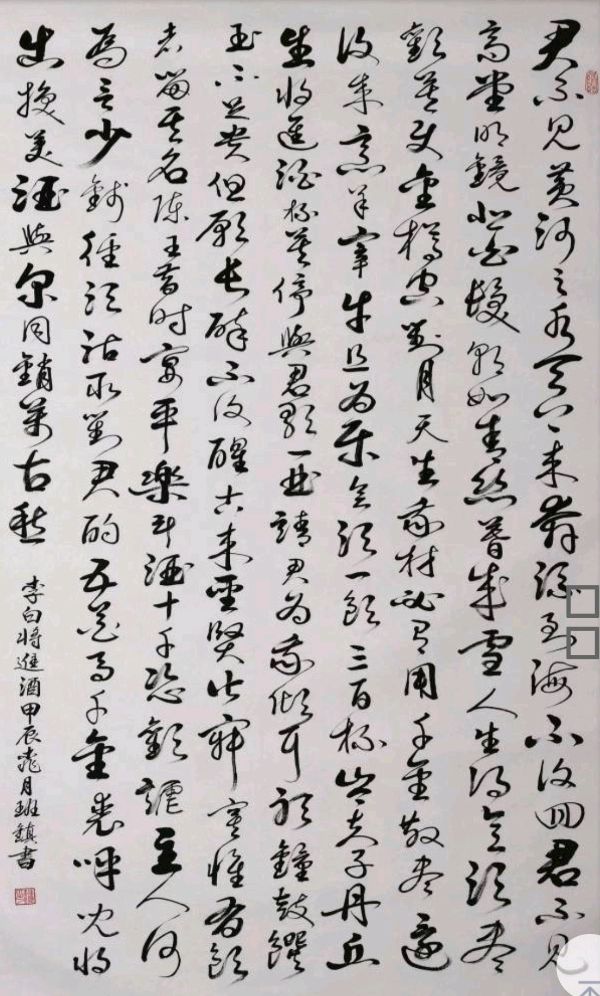 君不見黄河之水天上来奔流到海不復回君不見
高堂明鏡悲白髮朝如青絲暮成雪人生得意須盡
歡莫使金樽空對月天生我材必有用千金散盡還
復来烹羊宰牛且為樂會須一飲三百杯岑夫子丹丘
生將進酒杯莫停與君歌一曲請君為我傾耳聽鐘鼓饌
玉不足貴但願長醉不復醒古来聖賢皆寂寞惟有飲
者留其名陳王昔時宴平樂斗酒十千恣歡謔主人何
為言少錢徑須沽取對君酌五花馬千金裘呼兒將
出換美酒與尔同銷萬古愁
李白將進酒甲辰桃月班鎮書